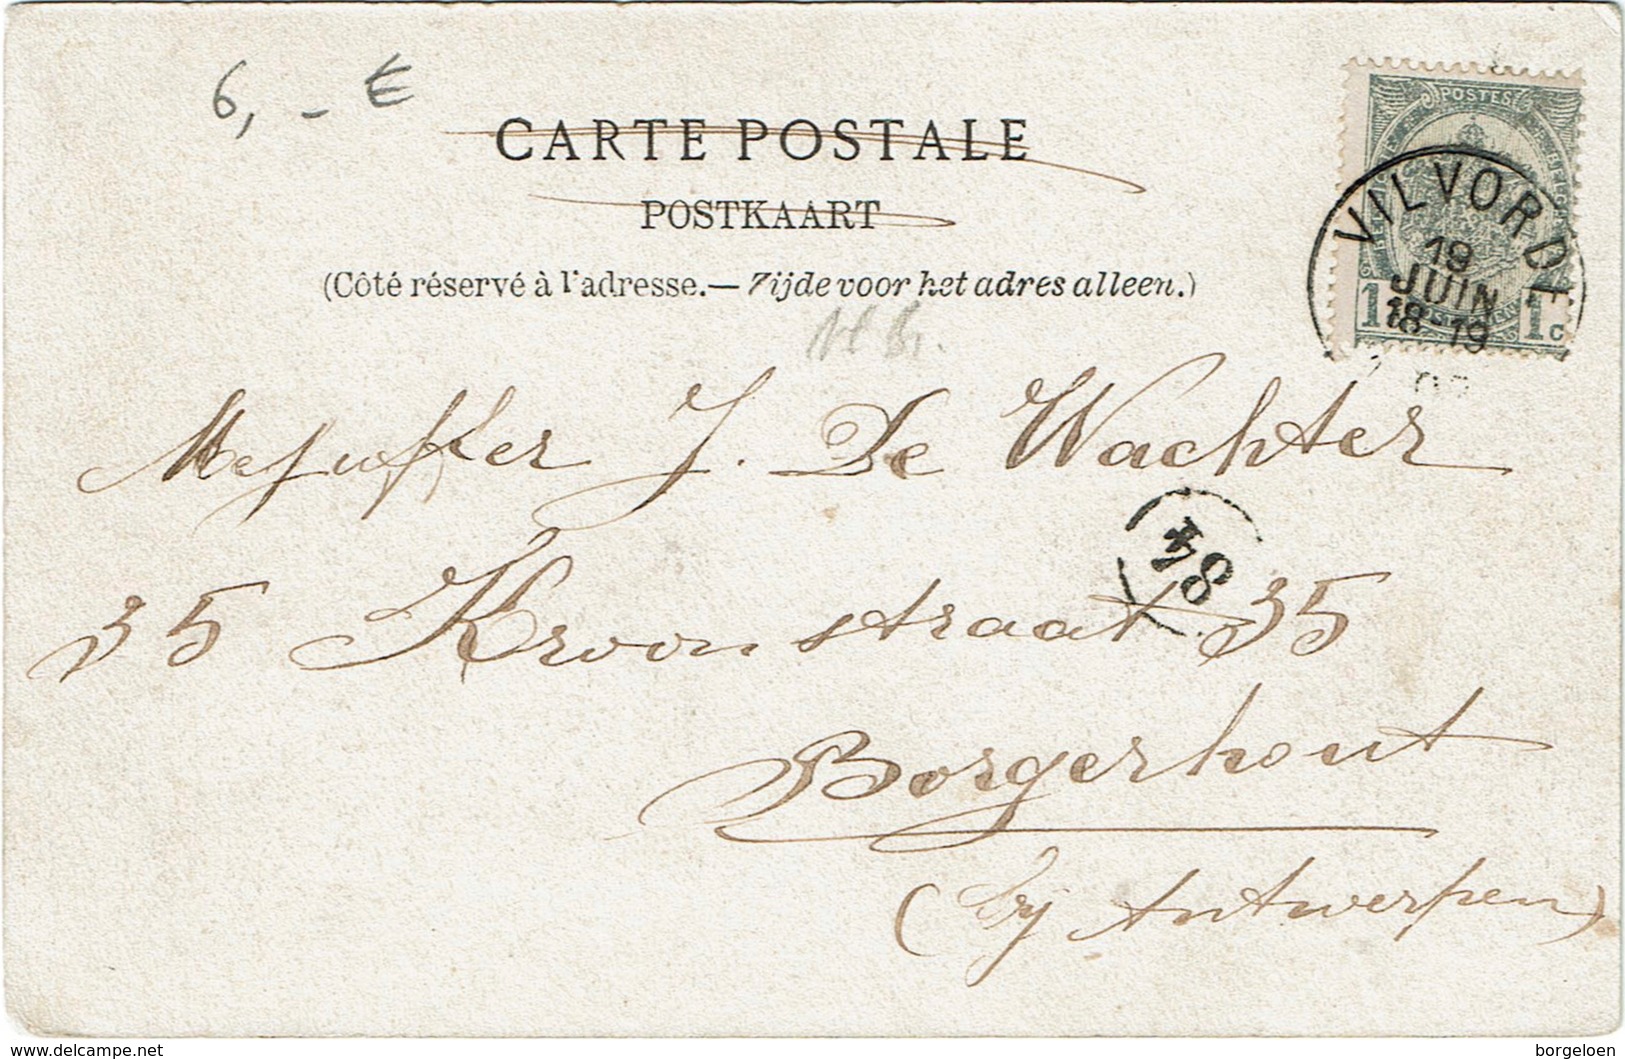 6,- €
CARTE POSTALE
POSTKAART
(Côté réservé à l'adresse.— Zijde voor het adres alleen.)
POSTES
1 1c
VILVORDE
19
JUIN
18-19
Mejuffer J. De Wachter
84
35 Kroonstraat 35
Borgerhout
(bij Antwerpen)
www.delcampe.net
borgeloen